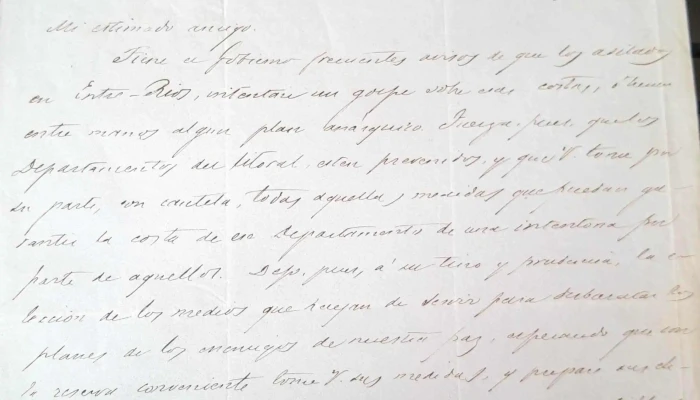 Mi estimado amigo.
Tiene el Gobierno frecuentes avisos de que los asilados
en Entre-Rios, intentan un golpe sobre esas costas, ó tienen
entre manos algun plan anarquico. Fuerza, pues, que los
Departamentos del litoral esten prevenidos, y que V. tome por
su parte, con cautela, todas aquellas medidas que puedan ga-
rantir la costa de ese Departamento de una intentona por
parte de aquellos. Dejo, pues, á su tino y prudencia, la e-
leccion de los medios que hayan de servir para desbaratar los
planes de los enemigos de nuestra paz, esperando que con
la reserva conveniente tome V. sus medidas, y prepare sus